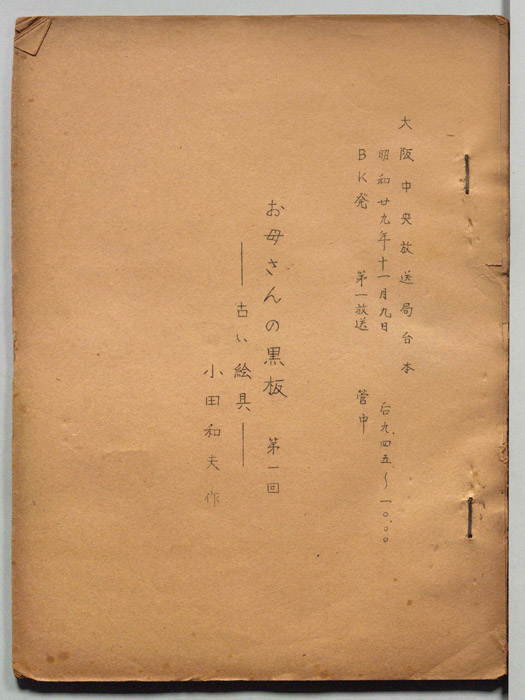 大阪中央放送局台本
昭和廿九年十一月九日 后九.四五〜一〇.〇〇
BK発 第一放送 管中
お母さんの黒板 第一回
――古い絵具――
小田和夫作